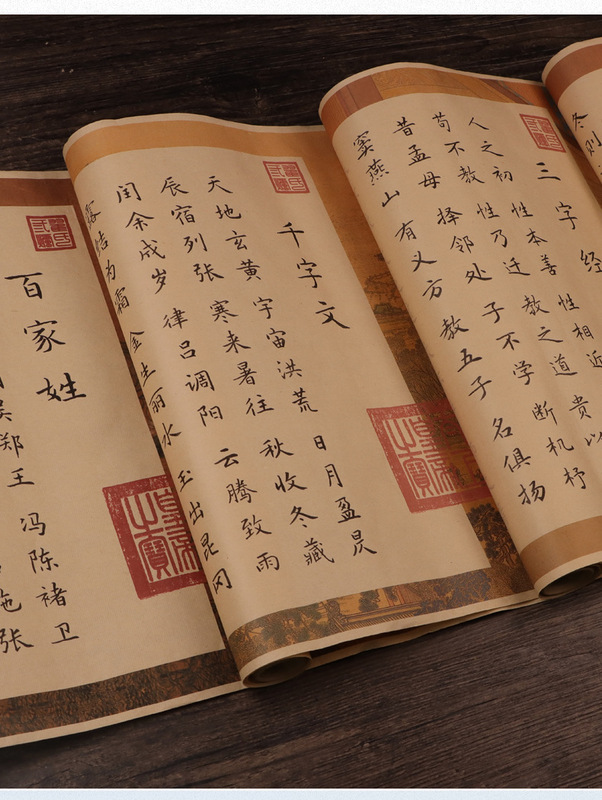 冬则
三字经
人之初 性本善 性相近
苟不教 性乃迁 教之道 贵以
昔孟母 择邻处 子不学 断机杼
窦燕山 有义方 教五子 名俱扬
千字文
天地玄黄 宇宙洪荒 日月盈昃
辰宿列张 寒来暑往 秋收冬藏
闰余成岁 律吕调阳 云腾致雨
露结为霜 金生丽水 玉出昆冈
之寶
百家姓
吴郑王 冯陈褚卫
施张
之寶